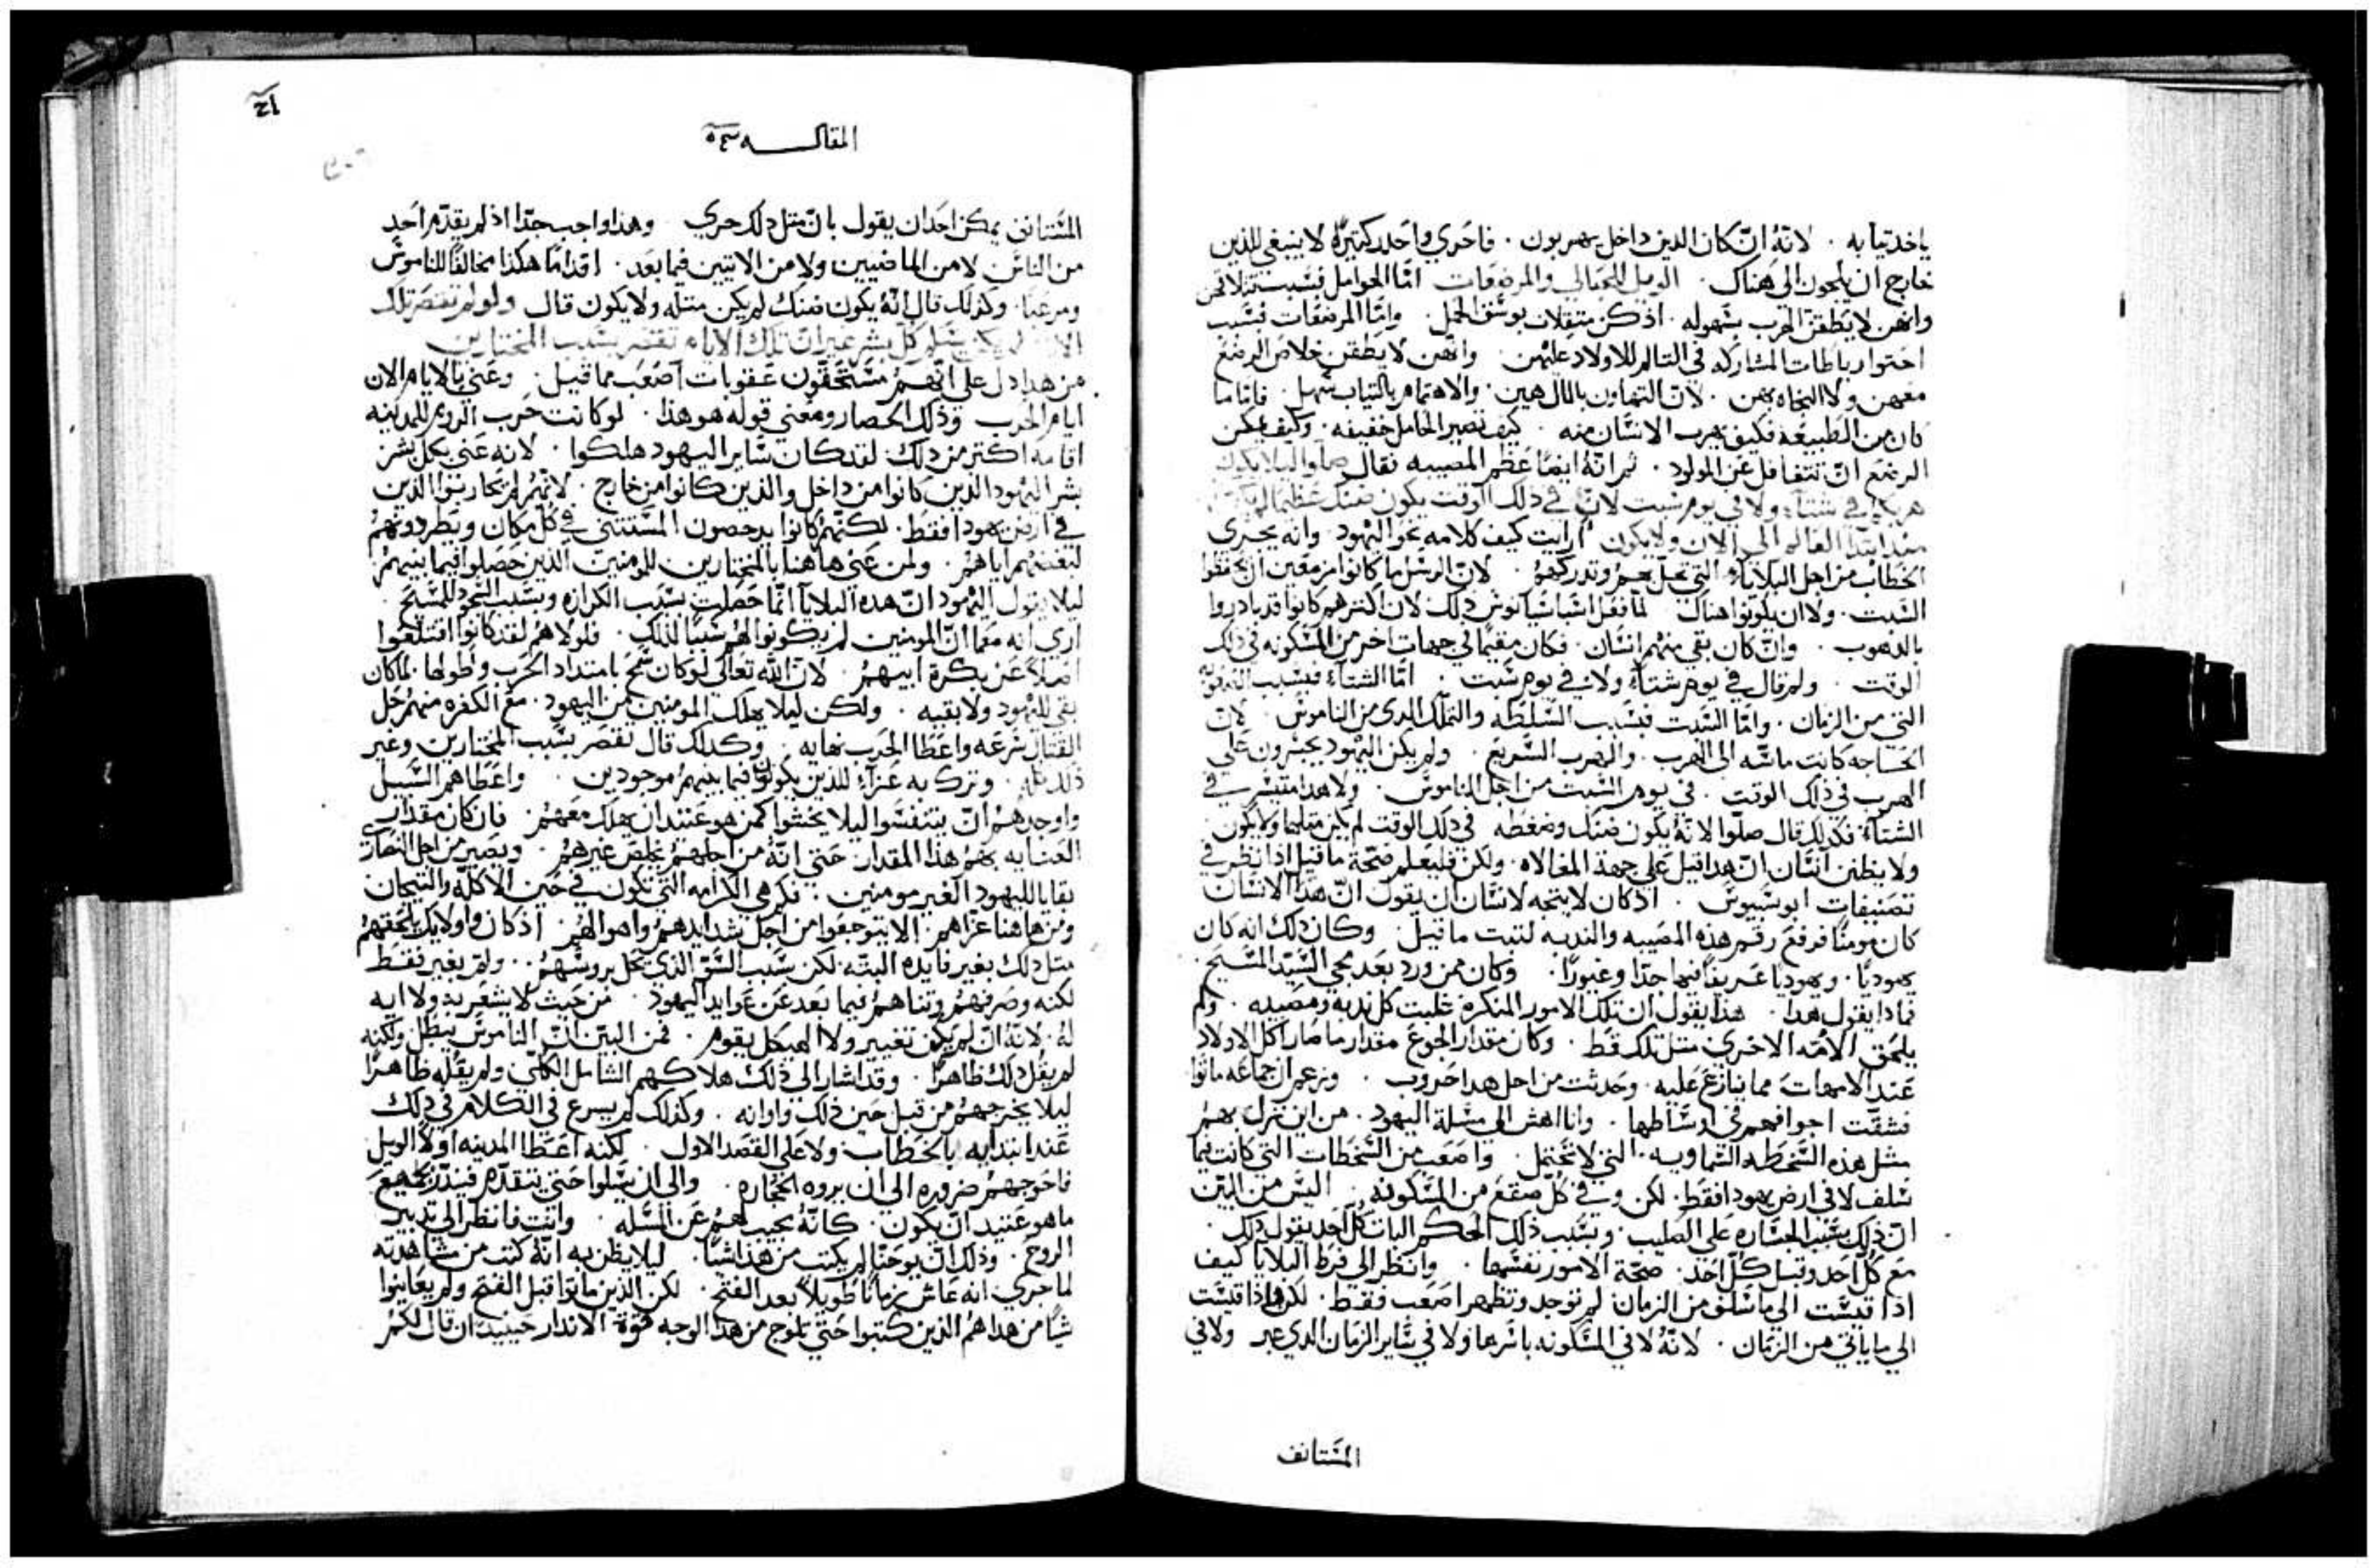 ياخد تيابه . لانهُ ان كان الدين داخل يهربون . فاحري واحدر كتيرًا لا ينبغي للذين
خارج ان يلجون الى هناك . الويل للحبالي والمرضعات امّا الحوامل فبسبب تتقلاتهن
وانهن لا يطقن الهرب بسهوله . اذ كن متقلات بوسق الحمل . وامّا المرضعات فبسبب
احتوا رباطات المشاركه في التالم للاولاد عليهن . وانهن لا يطقن خلاص الرضع
معهن ولا النجاه بهن . لان التهاون بالمال هين . والاهتمام بالتياب سهل . فامّا ما
كان من الطبيعه فكيف يهرب الانسان منه . كيف تصير الحامل خفيفه . وكيف يمكن
المرضع ان تتغافل عن المولود . ثم انهُ ايضًا عظم المصيبه فقال صلوا ليلا يكون
هربكم في شتاء ولا في يوم سبت لان في ذلك الوقت يكون ضنك عظيم لم يكن
منذ ابتدا العالم الى الان ولا يكون ارايت كيف كلامه نحو اليهود . وانه يجري
الخطاب من اجل البلايا التي تحل بهم وتدركهم . لان الرسل ما كانوا مزمعين ان يحفظوا
السبت . ولا ان يكونوا هناك لما فعل اسباسيانوس ذلك لان اكترهم كانوا قد بادروا
بالدهوب . وان كان بقي منهم انسان . فكان مقيمًا في جهات اخر من المسكونه في ذلك
الوقت . ولم قال في يوم شتاء ولا في يوم سبت . امّا الشتاء فبسبب
التي من الزمان . وامّا السبت فبسبب السلطه والتملك الدي من الناموس . لان
الحاجه كانت ماسّه الى الهرب . والهرب السريع . ولم يكن اليهود يجسرون على
الهرب في ذلك الوقت . في يوم السبت من اجل الناموس . ولا هدا متيسر في
الشتاء فكدلك قال صلّوا لانهُ يكون ضنك وضغطه في ذلك الوقت لم يكن متلها ولا يكون
ولا يظنن انسان ان هدا قيل على جهة المغالاه . ولكن فليعلم صحّة ما قيل اذا نظر في
تصنيفات ابوسيبوس . اد كان لا يتجه لانسان ان يقول انّ هدا الانسان
كان مومنًا فرفع رقم هذه المصيبه والندبه لتبت ما قيل . وكان ذلك انه كان
يهوديًا . ويهوديًا عريفًا فيها جدًا وغيورًا . وكان ممن ورد بعد مجي السيّد المسيح .
فمادا يقول هدا . هذا يقول ان تلك الامور المنكره غلبت كل ندبه ومصيبه . ولم
يلحق الامّه الاخرى متل تلك قط . وكان مقدار الجوع مقدار ما صار اكل الاولاد
عند الامهات مما ينازع عليه . وحدثت من اجل هدا حروب . وزعم ان جماعه ماتوا
فشقت اجوافهم في اوساطها . وانا اهش الى مسلة اليهود . من اين نزل بهم
مثل هذه السخطه السماويه . التي لا تحتمل . واصعب من السخطات التي كانت فيما
سلف لا في ارض يهودا فقط . لكن وفي كلّ صقع من المسكونه . اليس من البيّن
ان ذلك بسبب الجساره على الصليب . وبسبب ذلك الحكم البات كلّ احد يقول ذلك .
مع كلّ احد وقبل كلّ احد . صحّة الامور نفسها . وانظر الي فرط البلايا كيف
اذا قيست الي ما سلف من الزمان لم توجد وتظهر اصعب فقط . لكن واذا قيست
الى ما ياتي من الزمان . لانهُ لا في المسكونه باسرها ولا في ساير الزمان الدي عبر ولا في
المستانف
المقاله
المستانف يمكن احد ان يقول بان متل ذلك جري . وهذا واجب جدًا اذ لم يقدّم احد
من الناس لا من الماضيين ولا من الاتيين فيما بعد . اقدامًا هكذا مخالفًا للناموس
ومرعبًا . وكذلك قال انه يكون ضنك لم يكن متله ولا يكون قال ولو لم تقصر تلك
الايام لم يكن يسلم كل بشر غير ان تلك الايام تقصر بسبب المختارين
من هدا دل على انهم مستحقون عقوبات اصعب مما قيل . وعني بالايام الان
ايام الحرب وذلك الحصار ومعني قوله هو هذا . لو كانت حرب الروم للمدينه
اقامه اكتر من دلك لقد كان ساير اليهود هلكوا . لانه عني بكل بشر
بشر اليهود الذين كانوا من داخل والذين كانوا من خارج . لانهم لم يحاربوا الذين
في ارض يهودا فقط . لكنهم كانوا يدحصون في كل مكان ويطردونهم
لبغضتهم اياهم . ولمن عني هاهنا بالمختارين للمومنين الذين حصلوا فيما بينهم
ليلا يقول اليهود ان هده البلايا انّما حصلت بسبب الكرازه وبسبب السجود للمسيح .
اري انه معما ان المومنين لم يكونوا لهم سببًا لذلك . فلولاهم لقد كانوا اقتلعوا
اصلاً عن بكرة ابيهم . لان الله تعالى لو كان سمح بامتداد الحرب وطولها . لما كان
بقي لليهود ولا بقيه . ولكن ليلا يهلك المومنين من اليهود . مع الكفره منهم حل
القتال سرعه واعطا الحرب نهايه . وكدلك قال تقصر بسبب المختارين وغير
ذلك وترك به عزاء للذين يكونوا فيما بينهم موجودين . واعطاهم السبيل
واوجدهم ان يتنفسوا ليلا يخشوا كمن هو عتيد ان يهلك معهم . فان كان مقدار
العنايه بهم هذا المقدار . حتي انّهُ من اجلهم يخلص غيرهم . ويصير من اجل النصاري
بقايا لليهود الغير مومنين . فكم هي الكرامه التي تكون في حين الاكلّه والتيجان
ومن هاهنا عزاهم . الا يتوجعوا من اجل شدايدهم واهوالهم . اذ كان واولايك يلحقهم
متل دلك بغير فايده البته . لكن بسبب السّق الذي يحل بروسهم .. ولم يغير فقط
لكنه وصرفهم وتناهم فيما بعد عن عوايد اليهود . من حيث لا يشعر به ولا ايه
لهُ . لانهُ ان لم يكن تغيير ولا الهيكل يقوم . فمن البيّن انّ الناموس يبطل ولكنه
لم يقل دلك ظاهرًا . وقد اشار الى ذلك هلاكهم الشامل الكلّي . ولم يقله ظاهرًا
ليلا يخرجهم من قبل حين ذلك واوانه . وكذلك لم يسرع في الكلام في دلك
عند ابتدايه بالخطاب ولا على القصد الاول . لكنه اعطا المدينه اولاً الويل
فاحوجهم ضروره الى ان يروه الحجاره . والى ان يسلوا حتي يتقدّم فينذر بجميع
ما هو عتيد ان يكون . كانّهُ يجيب لهم عن المسله . وانت فانظر الى تدبير
الروح . وذلك ان يوحنّا لم يكتب من هذا شيًا . ليلا يظن به انّهُ كتب من مشاهدته
لما جري . انه عاش زمانًا طويلاً بعد الفتح . لكن الذين ماتوا قبل الفتح ولم يعاينوا
شيًا من هدا هم الذين كتبوا حتي تلوح من هدا الوجه قوة الاندار حينيد ان قال لكم